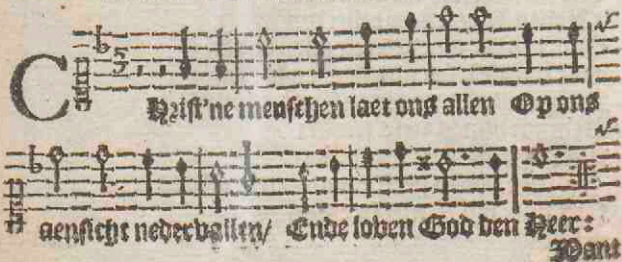 CHrist'ne menschen laet ons allen Op ons
aensicht nedervallen/ Ende loven God den Heer:
Want